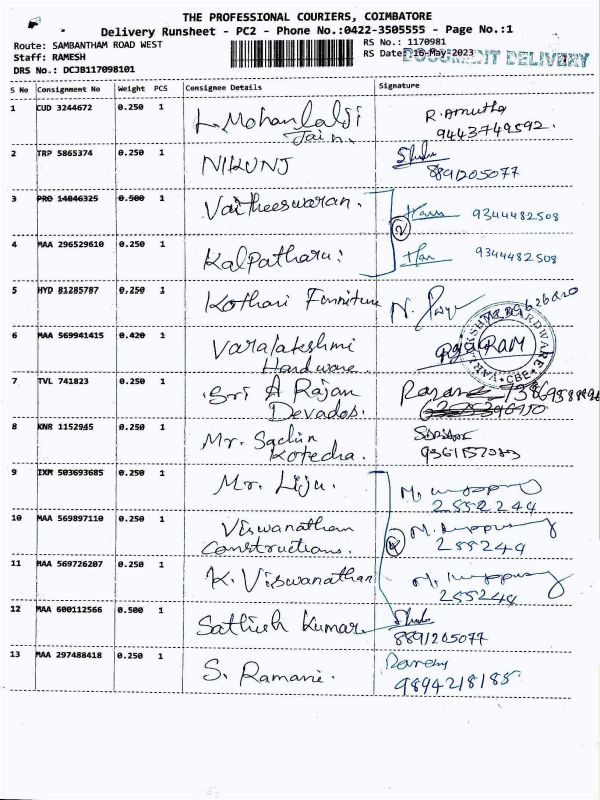 THE PROFESSIONAL COURIERS, COIMBATORE
Delivery Runsheet - PC2 - Phone No.:0422-3505555 - Page No.:1
Route: SAMBANTHAM ROAD WEST RS No.: 1170981
Staff: RAMESH RS Date: 16-May-2023 DOCUMENT DELIVERY
DRS No.: DCJB117098101
S No Consignment No Weight PCS Consignee Details Signature
1 CUD 3244672 0.250 1 L. Mohanlalji R. Amutha
Jain. 9443749592.
2 TRP 5865374 0.250 1 NIKUNJ
8891205077
3 PRO 14046325 0.500 1 Vaitheeswaran. 9344482508
4 MAA 296529610 0.250 1 Kalpatharu: 9344482508
5 HYD 81285787 0.250 1 Kothari Furniture
6 MAA 569941415 0.420 1 Varalakshmi
Hardware
7 TVL 741823 0.250 1 Sri A Rajan
Devados.
8 KNR 1152945 0.250 1 Mr. Sachin
Kotecha.
9 IXM 503693685 0.250 1 Mr. Liju.
2552244
10 MAA 569897110 0.250 1 Viswanatham
Constructions. 255244
11 MAA 569726207 0.250 1 K. Viswanathan
255244
12 MAA 600112566 0.500 1 Sathish Kumar.
8891205077
13 MAA 297488418 0.250 1 S. Ramani.
9894218185